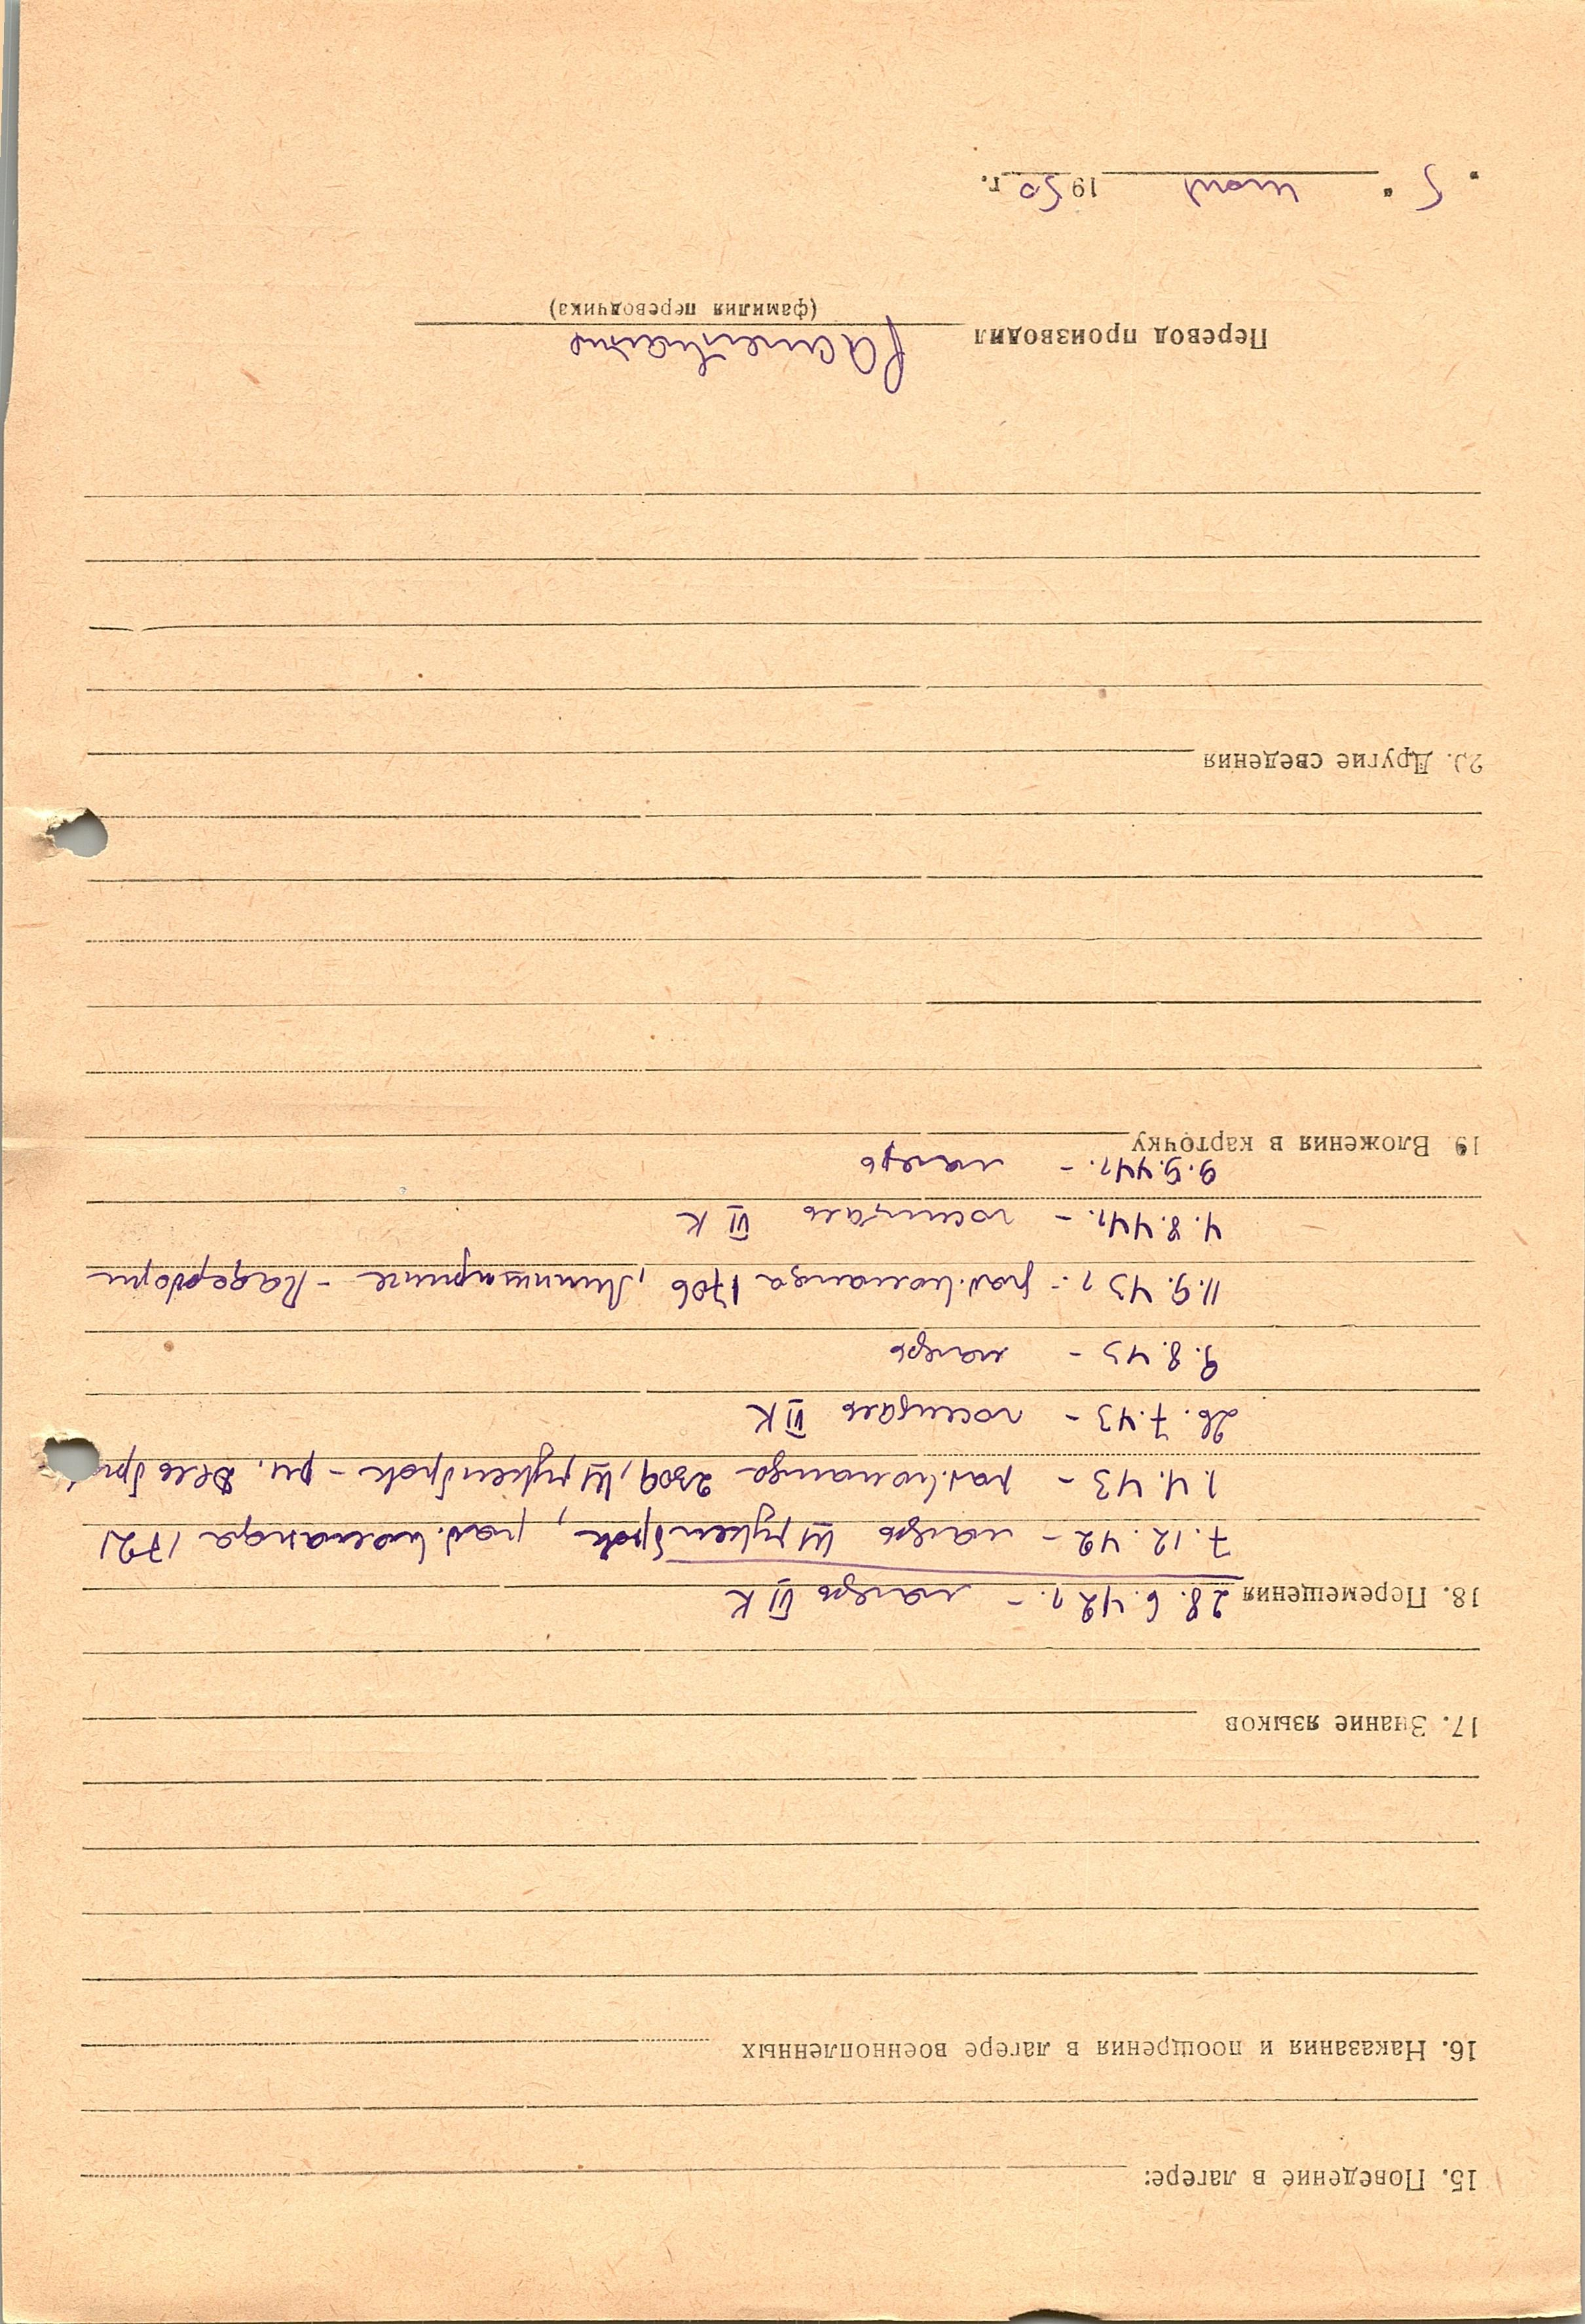 15. Поведение в лагере:
16. Наказания и поощрения в лагере военнопленных
17. Знание языков
18. Перемещения 28. 6. 42 г. – лагерь VI К
7. 12. 42 – лагерь Штукенброк, раб. команда 1721
1. 4. 43 – раб. команда 2309, Штукенброк –
26. 7. 43 – госпиталь VI К
9. 8. 43 – лагерь
11. 9. 43 г. – раб. команда 1706, Липпшпринге –
4. 8. 44 г. – госпиталь VI К
9. 9. 44 г. – лагерь
19. Вложения в карточку
20. Другие сведения
Перевод производил
(фамилия переводчика)
" 5 " 1950 г.